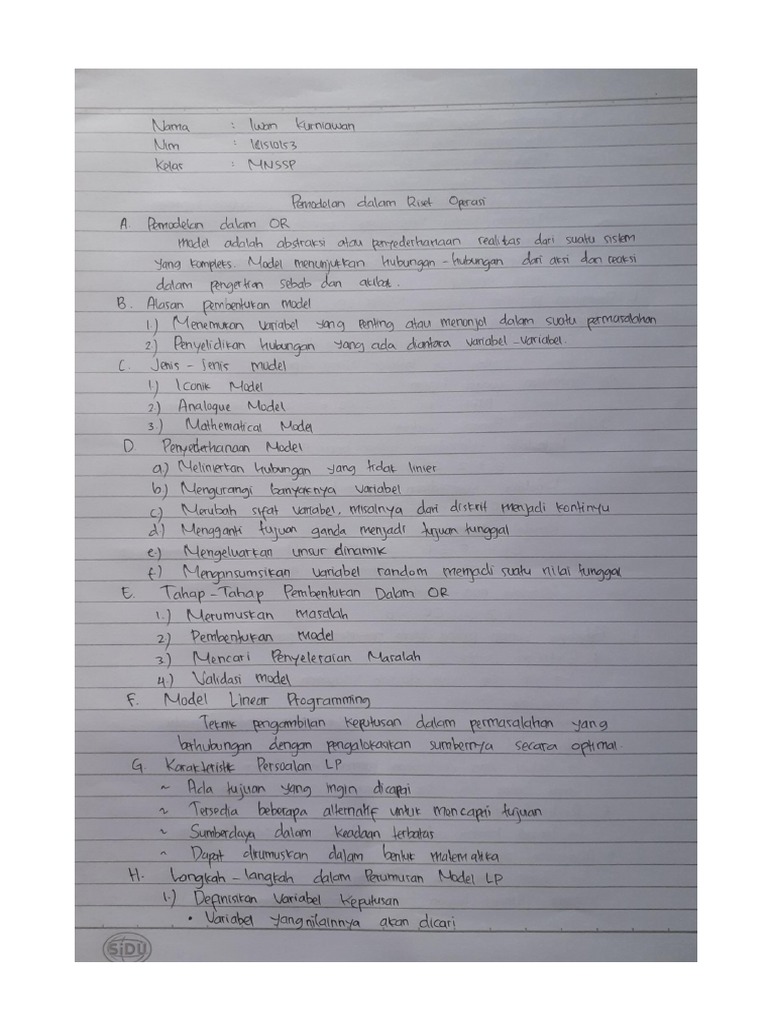 Nama : Iwan Kurniawan
Nim : 181510153
Kelas : MN5SP
Pemodelan dalam Riset Operasi
A. Pemodelan dalam OR
Model adalah abstraksi atau penyederhanaan realitas dari suatu sistem
yang kompleks. Model menunjukkan hubungan-hubungan dari aksi dan reaksi
dalam pengertian sebab dan akibat.
B. Alasan pembentukan model
1.) Menemukan variabel yang penting atau menonjol dalam suatu permasalahan
2) Penyelidikan hubungan yang ada diantara variabel-variabel.
C. Jenis-Jenis model
1) Iconik Model
2.) Analogue Model
3.) Mathematical Model
D. Penyederhanaan Model
a.) Melinierkan hubungan yang tidak linier
b) Mengurangi banyaknya variabel
c) Merubah sifat variabel, misalnya dari diskrit menjadi kontinyu
d) Mengganti tujuan ganda menjadi tujuan tunggal
e.) Mengeluarkan unsur dinamik
f.) Mengansumsikan variabel random menjadi suatu nilai tunggal
E. Tahap-Tahap Pembentukan Dalam OR
1.) Merumuskan masalah
2) Pembentukan model
3) Mencari Penyelesaian Masalah
4.) Validasi model
F. Model Linear Programming
Teknik pengambilan keputusan dalam permasalahan yang
berhubungan dengan pengalokasian sumbernya secara optimal.
G. Karakteristik Persoalan LP
~ Ada tujuan yang ingin dicapai
~ Tersedia beberapa alternatif untuk mencapai tujuan
~ Sumberdaya dalam keadaan terbatas
~ Dapat dirumuskan dalam bentuk matematika
H. Langkah-langkah dalam Perumusan Model LP
1.) Definisikan Variabel Keputusan
• Variabel yang nilainnya akan dicari
SiDU